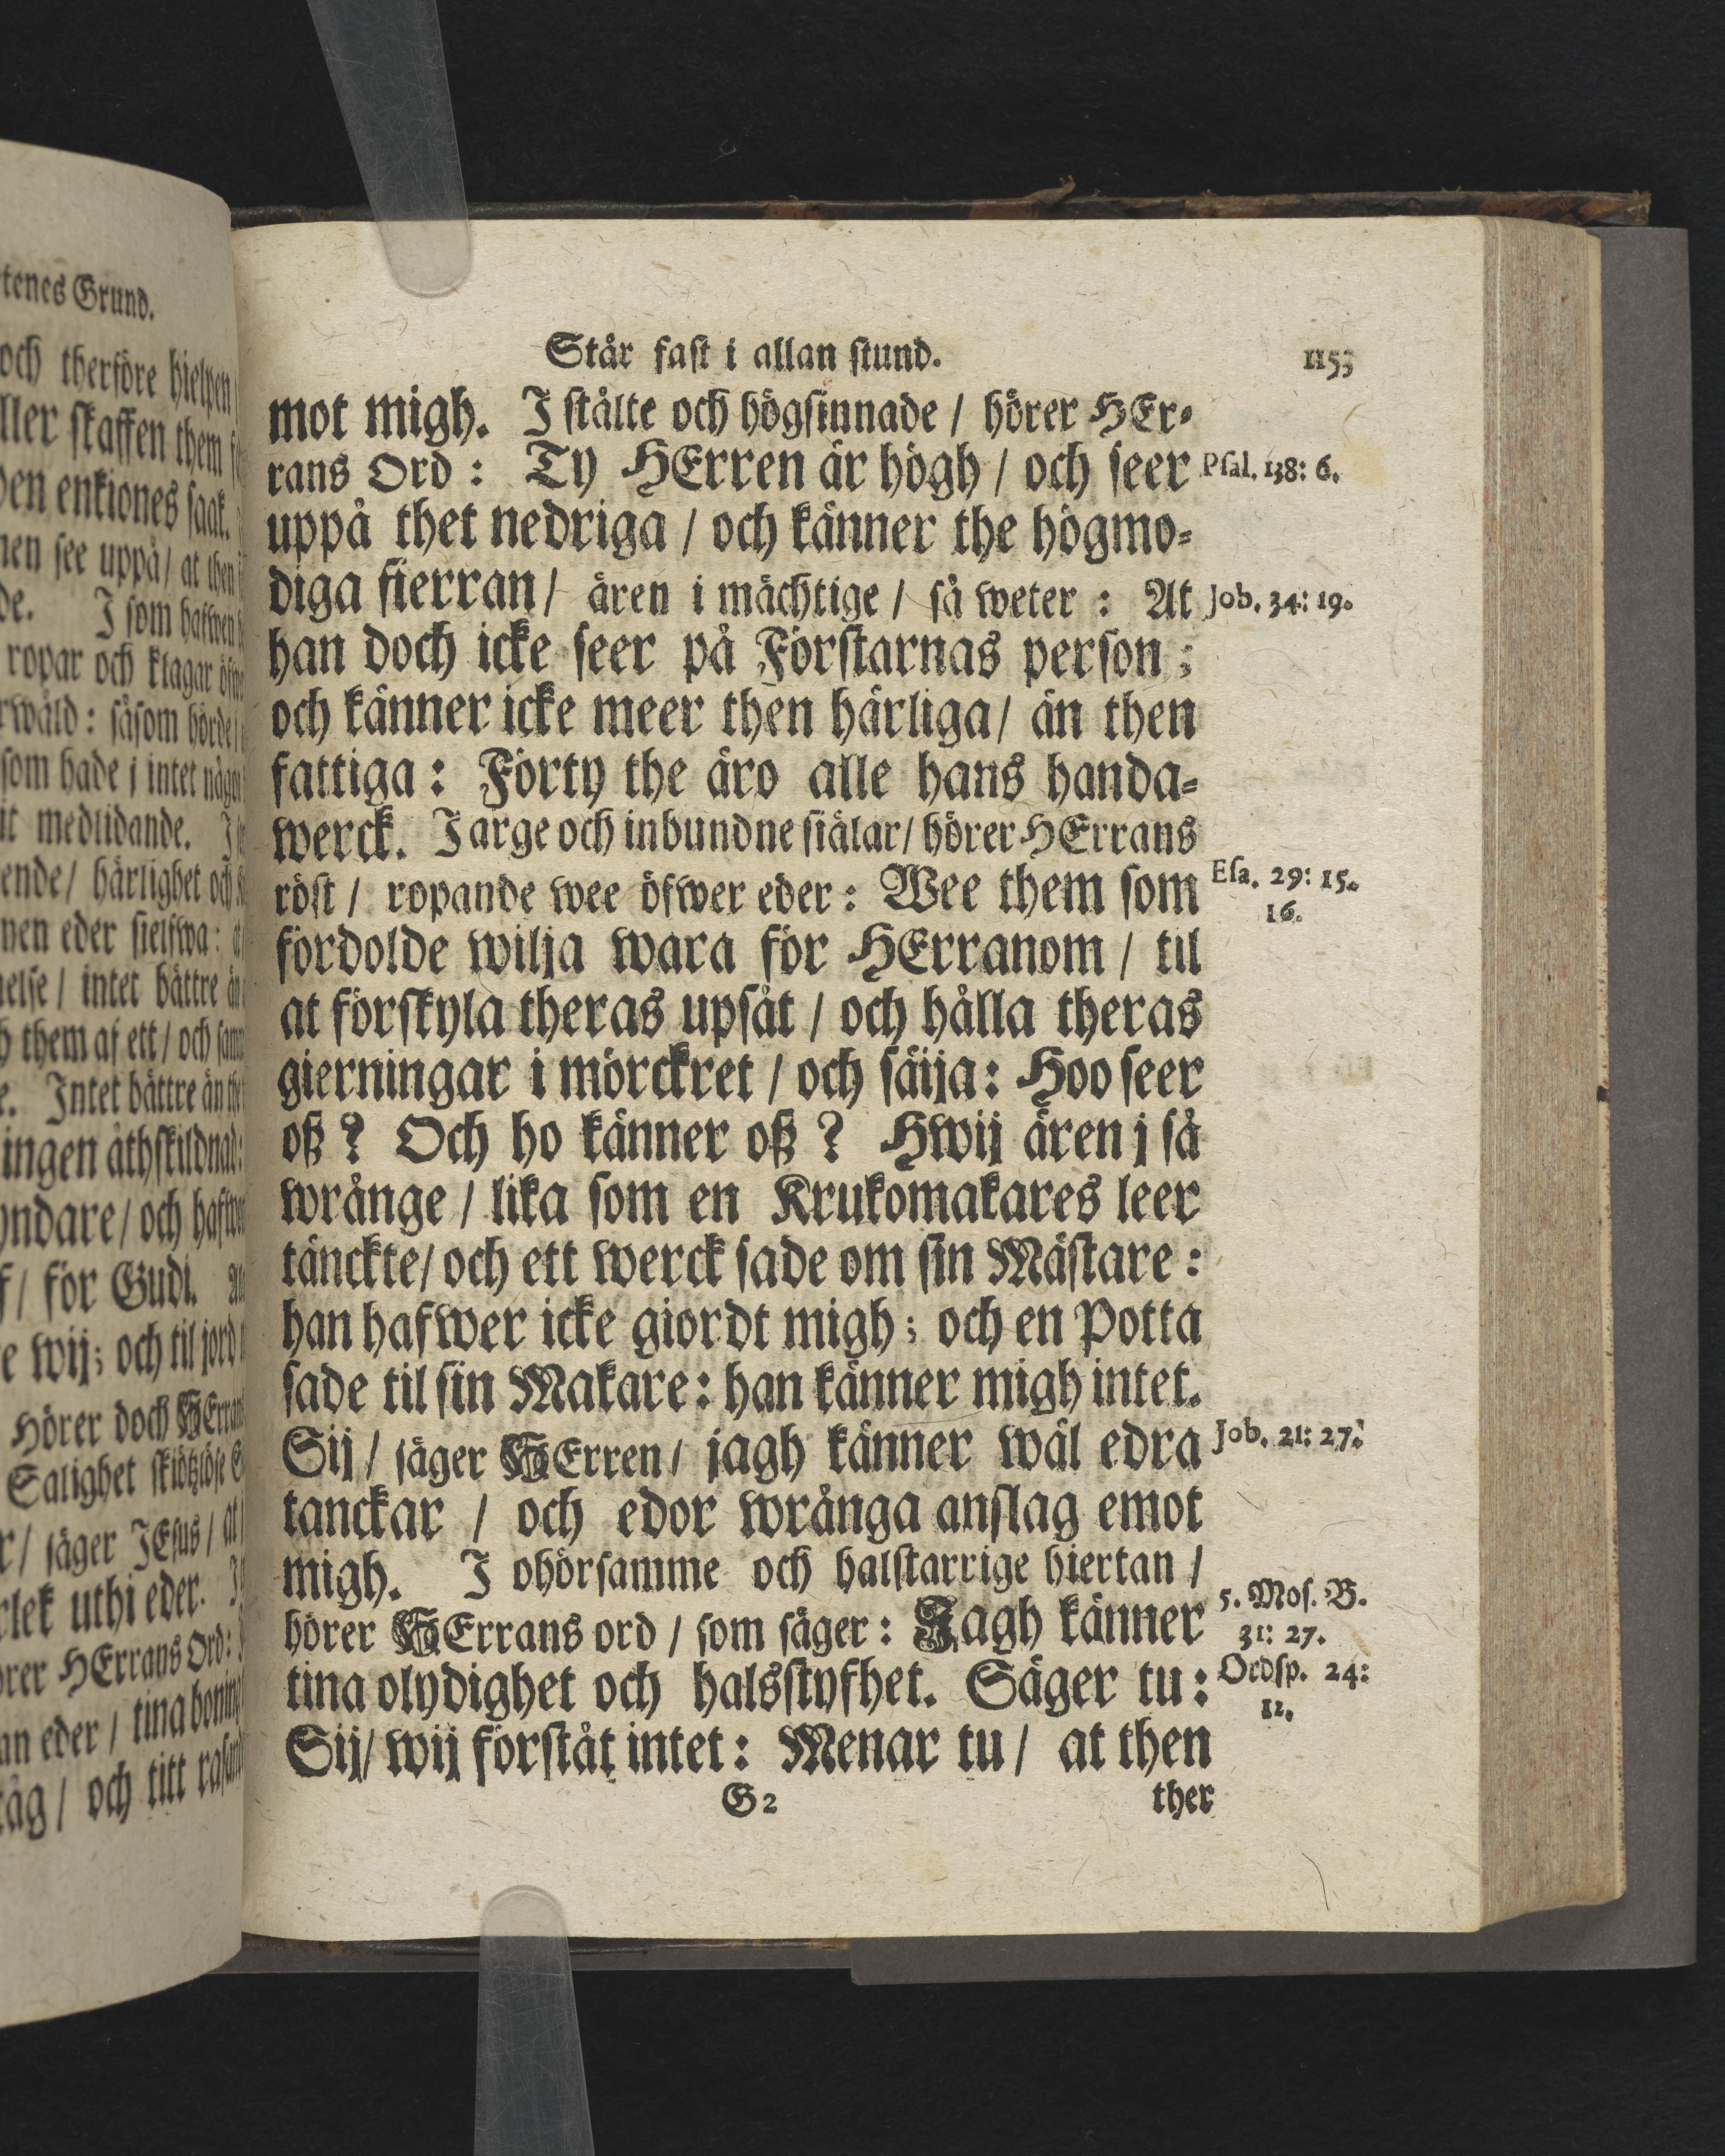 tenes Grund.
och therföre hielpen
ller skaffen them
den enkiones saak.
nen see uppå/ at then
de. I som hafwen
ropar och klagar öfwe
rwåld: såsom hörde
som hade j intet någo
it medlidande.
ende/ härlighet och
nen eder sielfwa:
else/ intet bättre än
them af ett/ och
e. Intet bättre än the
ingen åthskildnad:
yndare/ och hafwe
f/ för Gudi.
e wij; och til jord
Hörer doch HErran
Salighet skiötzlöse
r/ säger JEsus/ at
rlek uthi eder.
örer HErrans Ord:
an eder/ tina boning
tåg/ och titt
Står fast i allan stund. 1153
mot migh. I stålte och högsinnade / hörer HEr-
rans Ord: Ty HErren är högh / och seer Psal. 138: 6.
uppå thet nedriga / och känner the högmo-
diga fierran / ären i mächtige / så weter: At Job. 34: 19.
han doch icke seer på Förstarnas person;
och känner icke meer then härliga / än then
fattiga: Förty the äro alle hans handa-
werck. I arge och inbundne siälar / hörer HErrans
röst / ropande wee öfwer eder: Wee them som Esa. 29: 15.
16.
fördolde wilja wara för HErranom / til
at förskyla theras upsåt / och hålla theras
gierningar i mörckret / och säija: Hoo seer
oß? Och ho känner oß? Hwij ären j så
wrånge / lika som en Krukomakares leer
tänckte / och ett werck sade om sin Mästare:
han hafwer icke giordt migh; och en Potta
sade til sin Makare: han känner migh intet.
Sij / säger HErren / jagh känner wäl edra Job. 21: 27.
tanckar / och edor wrånga anslag emot
migh. I ohörsamme och halstarrige hiertan /
hörer HErrans ord / som säger: Jagh känner 5. Mos. B.
31: 27.
tina olydighet och halsstyfhet. Säger tu: Ordsp. 24:
12.
Sij / wij förståt intet: Menar tu / at then
G 2 ther